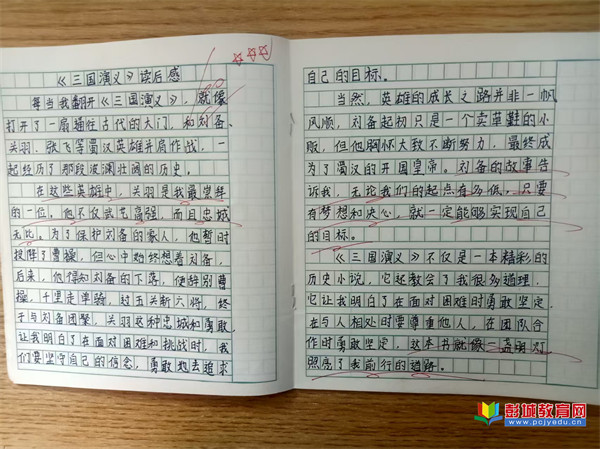 《三国演义》读后感
每当我翻开《三国演义》，就像
打开了一扇通往古代的大门，和刘备、
关羽、张飞等蜀汉英雄并肩作战，一
起经历了那段波澜壮阔的历史。
在这些英雄中，关羽是我最崇拜
的一位。他不仅武艺高强，而且忠诚
无比。为了保护刘备的家人，他暂时
投降了曹操，但心中始终想着刘备，
后来，他得知刘备的下落，便辞别曹
操，千里走单骑，过五关斩六将，终
于与刘备团聚，关羽这种忠诚和勇敢，
让我明白了在面对困难和挑战时，我
们要坚守自己的信念，勇敢地去追求
自己的目标。
当然，英雄的成长之路并非一帆
风顺，刘备起初只是一个卖草鞋的小
贩，但他胸怀大致不断努力，最终成
为了蜀汉的开国皇帝。刘备的故事告
诉我，无论我们的起点有多低，只要
有梦想和决心，就一定能够实现自己
的目标。
《三国演义》不仅是一本精彩的
历史小说，它还教会了我很多道理，
它让我明白了在面对困难时勇敢坚定，
在与人相处时要尊重他人，在团队合
作时勇敢坚定，这本书就像一盏明灯
照亮了我前行的道路。
彭城教育网
www.pcjyedu.cn